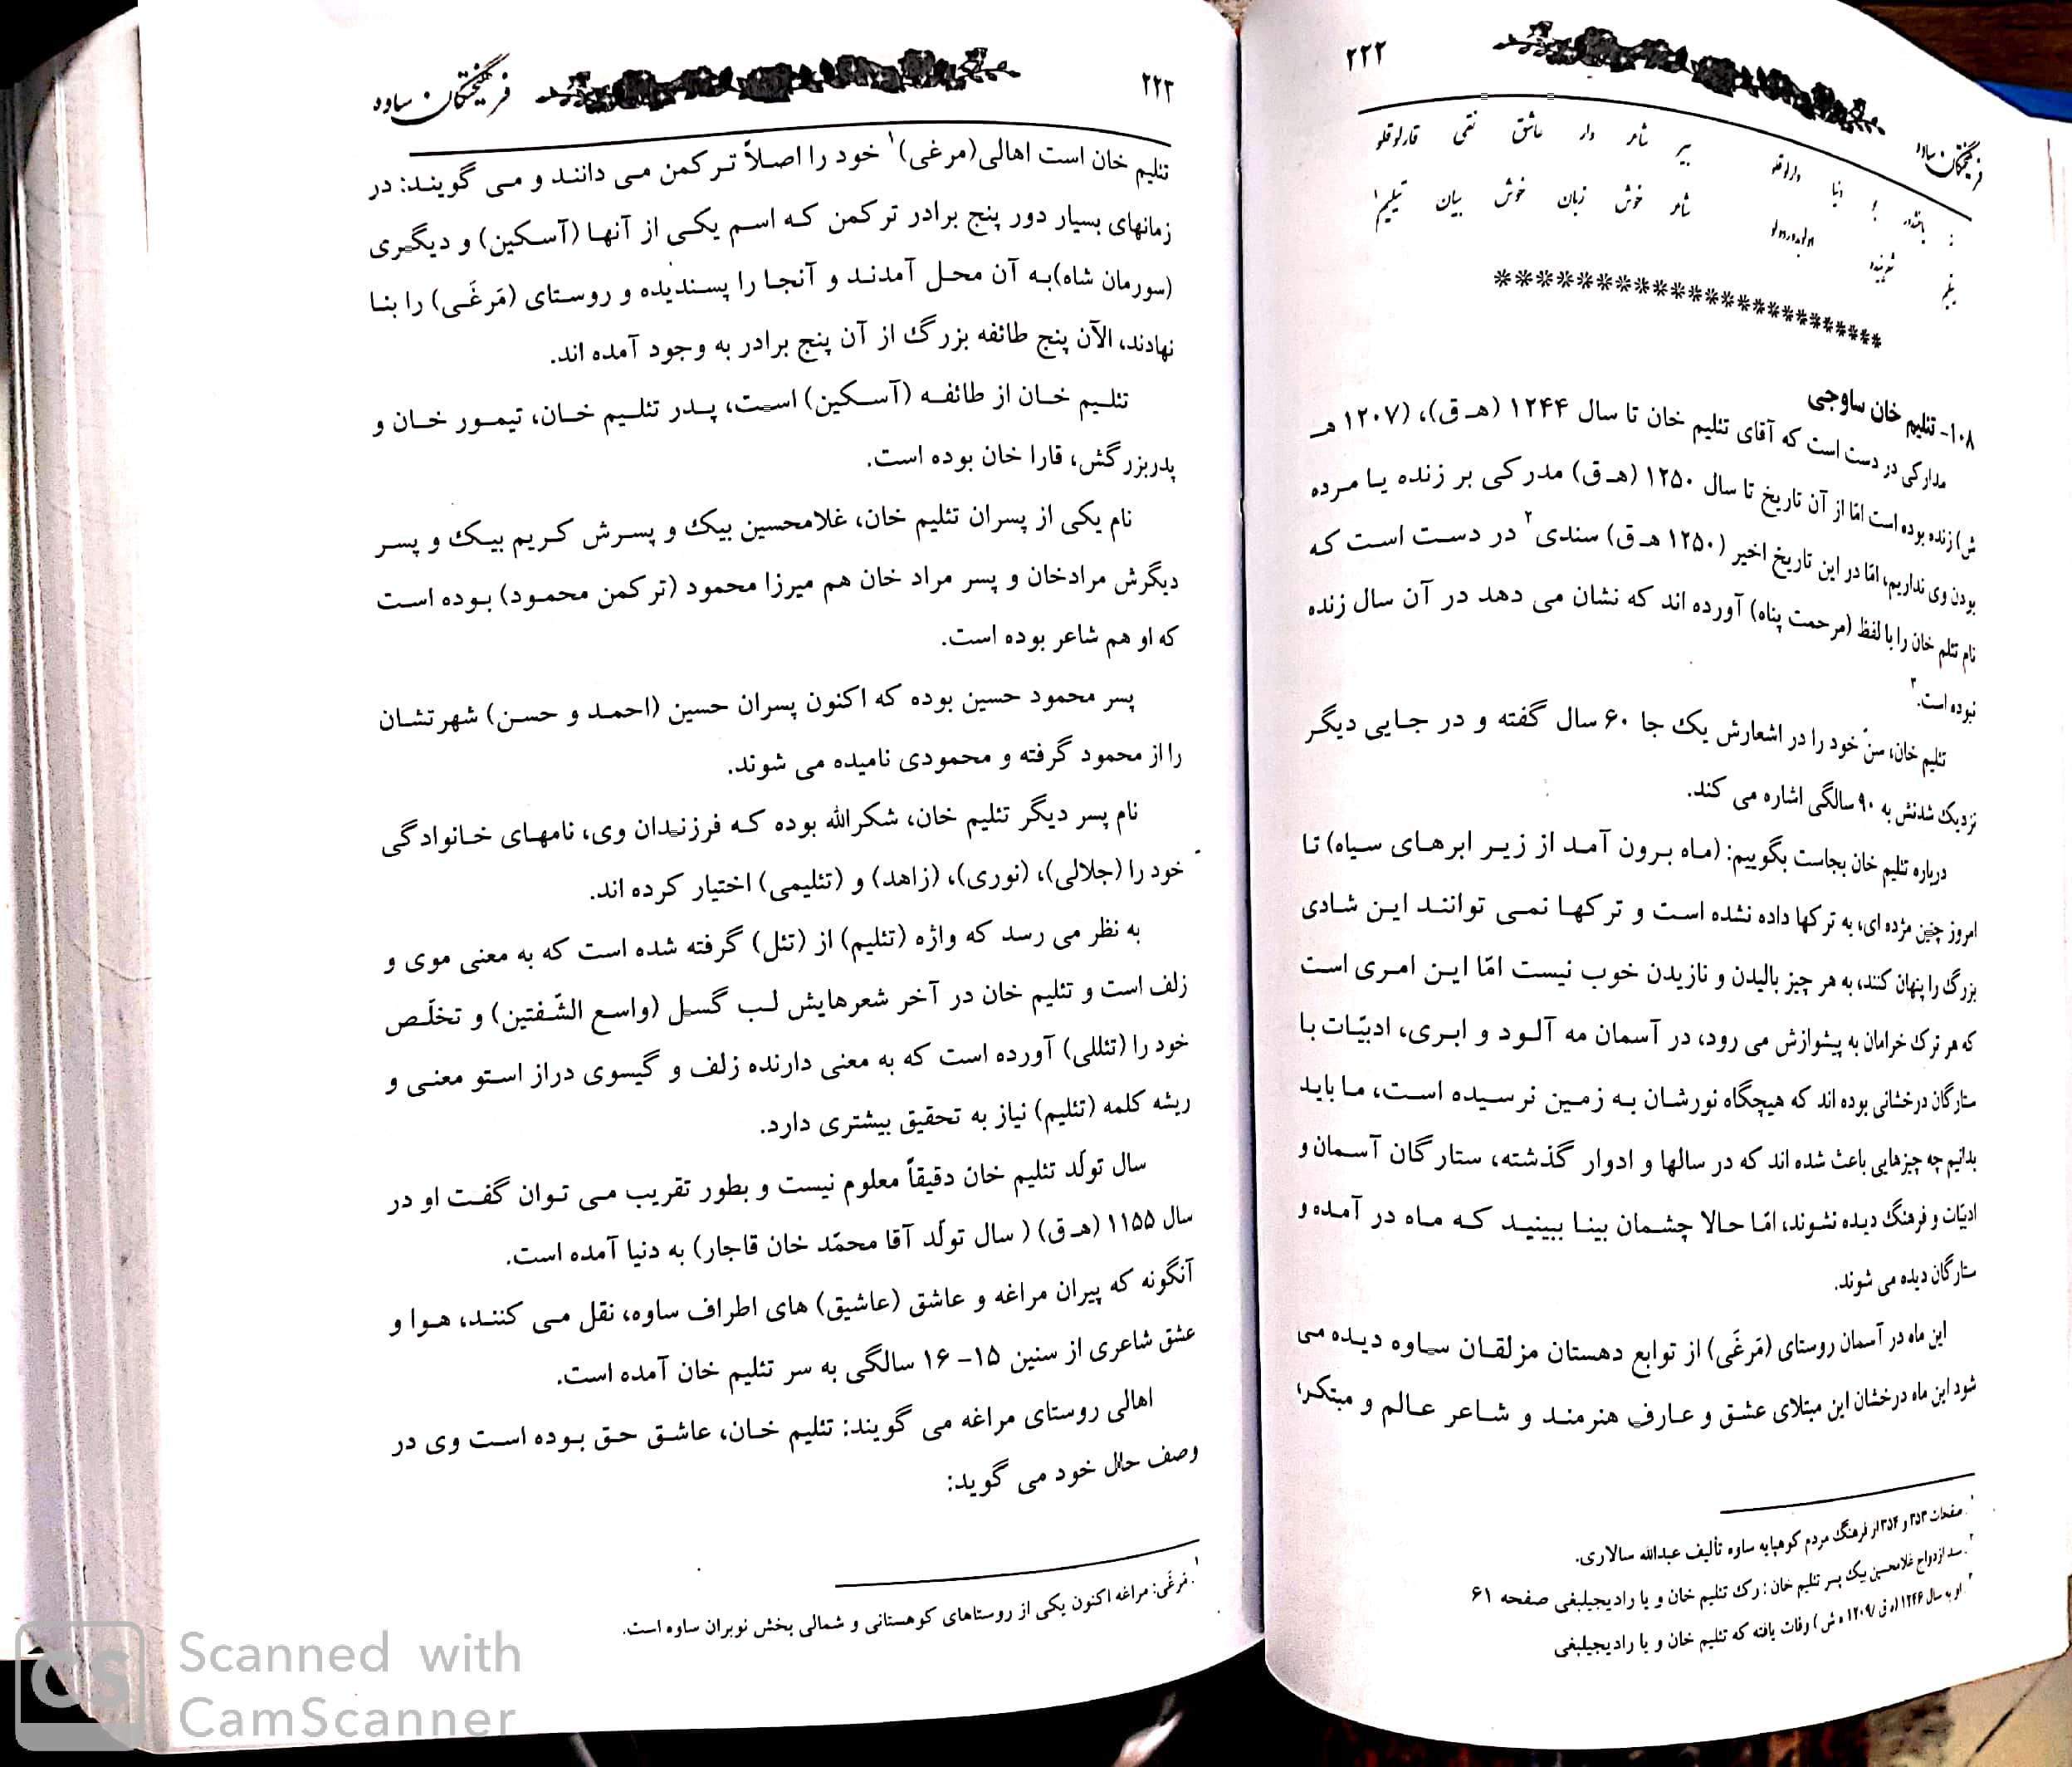 ۲۲۲
فرهیختگان ساوه
بیر شاعر دار عاشق نقی قارلوقلو
شاعر خوش زبان خوش بیان تیلیم۱
*****************************
۱۰۸- تئلیم خان ساوجی
مدارکی در دست است که آقای تئلیم خان تا سال ۱۲۴۴ (هـ ق)، (۱۲۰۷ هـ
ش) زنده بوده است امّا از آن تاریخ تا سال ۱۲۵۰ (هـ ق) مدرکی بر زنده یا مرده
بودن وی نداریم، امّا در این تاریخ اخیر (۱۲۵۰ هـ ق) سندی۲ در دست است که
نام تئلم خان را با لفظ (مرحمت پناه) آورده اند که نشان می دهد در آن سال زنده
نبوده است.۳
تئلیم خان، سنّ خود را در اشعارش یک جا ۶۰ سال گفته و در جایی دیگر
نزدیک شدنش به ۹۰ سالگی اشاره می کند.
درباره تئلیم خان بجاست بگوییم: (ماه برون آمد از زیر ابرهای سیاه) تا
امروز چنین مژده ای، به ترکها داده نشده است و ترکها نمی توانند این شادی
بزرگ را پنهان کنند، به هر چیز بالیدن و نازیدن خوب نیست امّا این امری است
که هر ترک خرامان به پیشوازش می رود، در آسمان مه آلود و ابری، ادبیّات با
ستارگان درخشانی بوده اند که هیچگاه نورشان به زمین نرسیده است، ما باید
بدانیم چه چیزهایی باعث شده اند که در سالها و ادوار گذشته، ستارگان آسمان و
ادبیّات و فرهنگ دیده نشوند، امّا حالا چشمان بینا ببینید که ماه در آمده و
ستارگان دیده می شوند.
این ماه در آسمان روستای (مَرغَی) از توابع دهستان مزلقان ساوه دیده می
شود این ماه درخشان این مبتلای عشق و عارف هنرمند و شاعر عالم و مبتکر،
۱. صفحات ۳۵۳ و ۳۵۴ از فرهنگ مردم کوهپایه ساوه تألیف عبدالله سالاری.
۲. سند ازدواج غلامحسین بیک پسر تئلیم خان : رک تئلیم خان و یا رادیجیلیغی صفحه ۶۱
۳. او به سال ۱۲۴۶ (ه ق /۱۲۰۹ ه ش) وفات یافته که تئلیم خان و یا رادیجیلیغی
۲۲۳
فرهیختگان ساوه
تئلیم خان است اهالی(مرغی)۱ خود را اصلاً ترکمن می دانند و می گویند: در
زمانهای بسیار دور پنج برادر ترکمن که اسم یکی از آنها (آسکین) و دیگری
(سورمان شاه)به آن محل آمدند و آنجا را پسندیده و روستای (مَرغَی) را بنا
نهادند، الآن پنج طائفه بزرگ از آن پنج برادر به وجود آمده اند.
تئلیم خان از طائفه (آسکین) است، پدر تئلیم خان، تیمور خان و
پدربزرگش، قارا خان بوده است.
نام یکی از پسران تئلیم خان، غلامحسین بیک و پسرش کریم بیک و پسر
دیگرش مرادخان و پسر مراد خان هم میرزا محمود (ترکمن محمود) بوده است
که او هم شاعر بوده است.
پسر محمود حسین بوده که اکنون پسران حسین (احمد و حسن) شهرتشان
را از محمود گرفته و محمودی نامیده می شوند.
نام پسر دیگر تئلیم خان، شکرالله بوده که فرزندان وی، نامهای خانوادگی
خود را (جلالی)، (نوری)، (زاهد) و (تئلیمی) اختیار کرده اند.
به نظر می رسد که واژه (تئلیم) از (تئل) گرفته شده است که به معنی موی و
زلف است و تئلیم خان در آخر شعرهایش لب گسل (واسع الشّفتین) و تخلّص
خود را (تئللی) آورده است که به معنی دارنده زلف و گیسوی دراز استو معنی و
ریشه کلمه (تئلیم) نیاز به تحقیق بیشتری دارد.
سال تولّد تئلیم خان دقیقاً معلوم نیست و بطور تقریب می توان گفت او در
سال ۱۱۵۵ (هـ ق) ( سال تولّد آقا محمّد خان قاجار) به دنیا آمده است.
آنگونه که پیران مراغه و عاشق (عاشیق) های اطراف ساوه، نقل می کنند، هوا و
عشق شاعری از سنین ۱۵- ۱۶ سالگی به سر تئلیم خان آمده است.
اهالی روستای مراغه می گویند: تئلیم خان، عاشق حق بوده است وی در
وصف حال خود می گوید:
۱. مَرغَی: مراغه اکنون یکی از روستاهای کوهستانی و شمالی بخش نوبران ساوه است.
CS
Scanned with
CamScanner